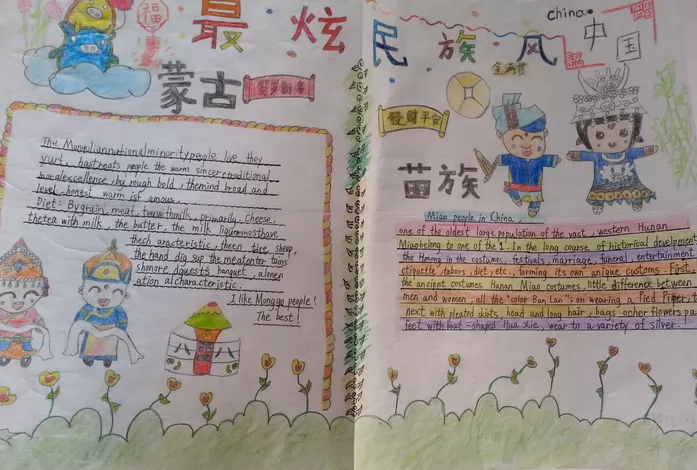 最炫民族风
福
china
中国
金满贯
蒙古
贺岁新春
The Mongoliannationalminoritypeople live they
yurt, hastreats people the warm sincer
excellence, by rough bold, themind broad and
level honest warm ist amous.
Diet: Bygrain, meat, primarily. cheese,
thetea with milk, the batter, the milk liquormosthave
thesh aracteristic, theen tice, sheep,
the hand dig sup the meatenter tains
shonore dguests banquet,
ation alcharacteristic.
I like Mongo people!
The best!
發財平安
苗族
Miao people in China,
one of the oldest large population of the vast, western Hunan
Miaobelong to one of the 1. In the long course of historical development
the Hmong in the costumes, festivals, marriage, funeral, entertainment
etiquette, taboos, diet, etc., forming its own unique customs. First
the ancient costumes Hunan Miao costumes, little difference between
men and women, all the "color Ban Lan"; on wearing a Pied Piper
next with pleated skirts, head and long hair, bags other flowers pa
feet with boat-shaped Hua Xie, wear to a variety of silver.